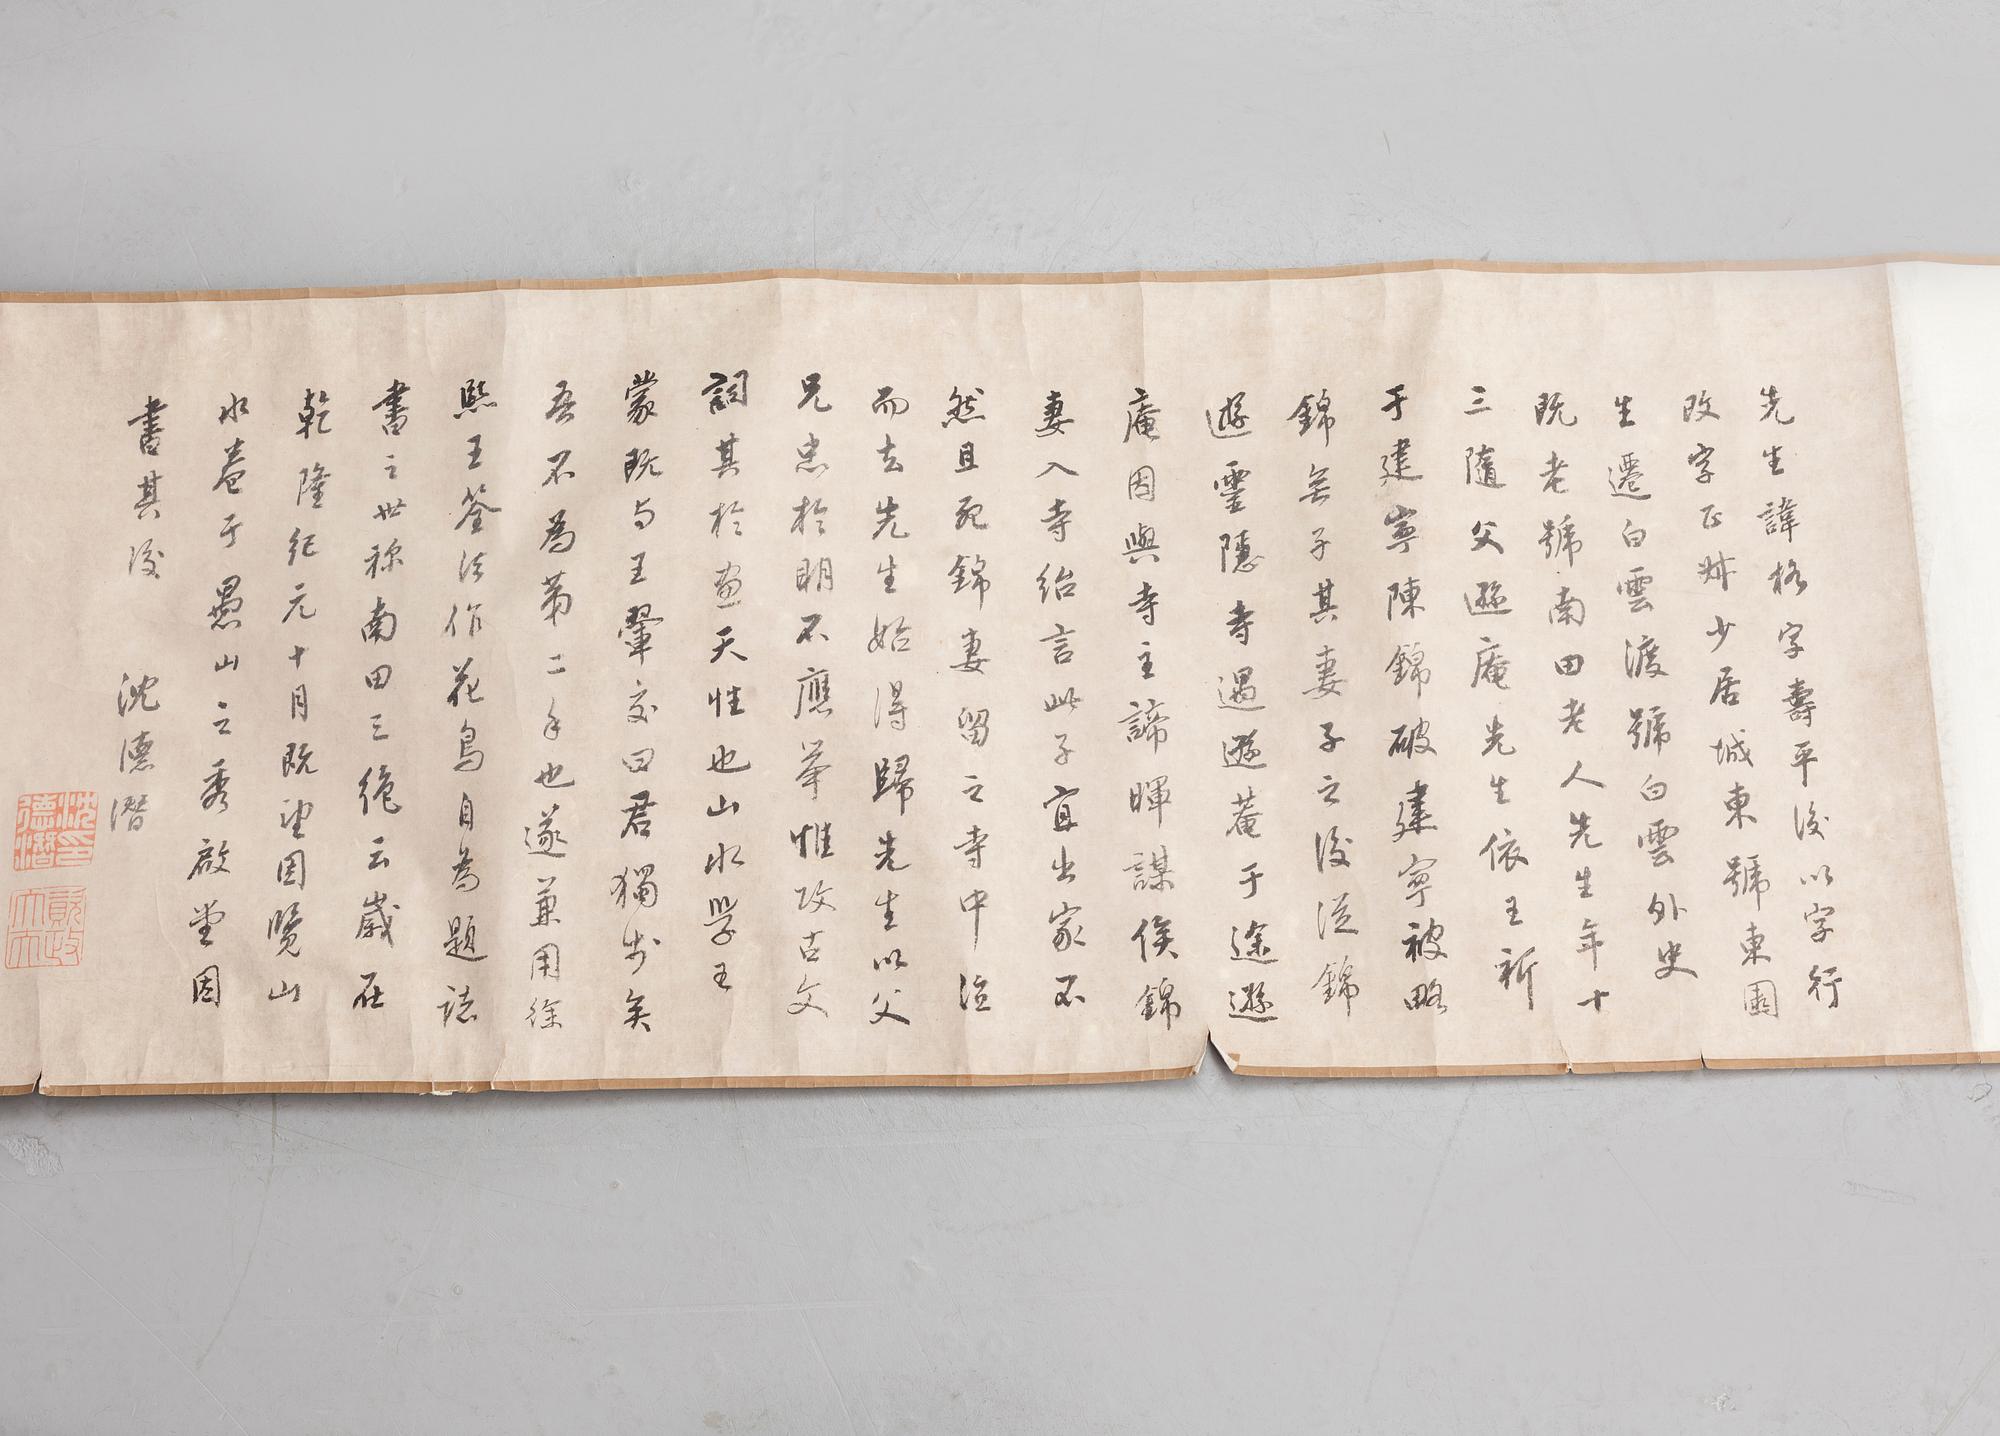 先生諱格字壽平後以字行
改字正叔少居城東號東園
生遷白雲渡號白雲外史
既老號南田老人先生年十
三隨父遜庵先生依王祈
于建寧陳錦破建寧被略
錦無子其妻子之後從錦
遊靈隱寺遇遜菴于途遜
庵因與寺主諦暉謀俟錦
妻入寺紿言此子宜出家不
然且死錦妻留之寺中泣
而去先生始得歸先生以父
兄忠於明不應舉惟攻古文
詞其於畫天性也山水學王
蒙既与王翬交曰君獨步矣
吾不為第二手也遂兼用徐
熙王筌法作花鳥自為題誌
書之世称南田三絕云歲在
乾隆紀元十月既望因覽山
水卷于愚山之秀啟堂因
書其後 沈德潛
沈德潛印